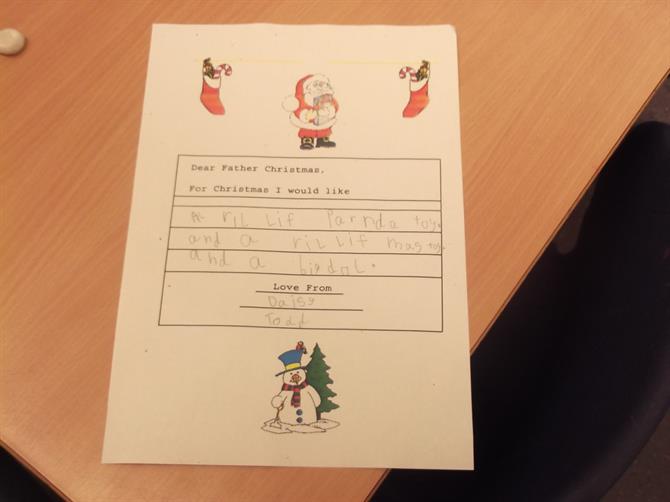 Dear Father Christmas,
For Christmas I would like
A riL Lif Parnda toy.
and a riL Lif mas toy.
and a big doL.
Love From
Daisy
Todd